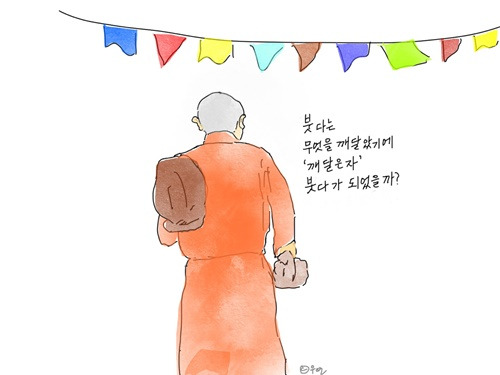 붓다는
무엇을 깨달았기에
'깨달은자'
붓다가 되었을까?